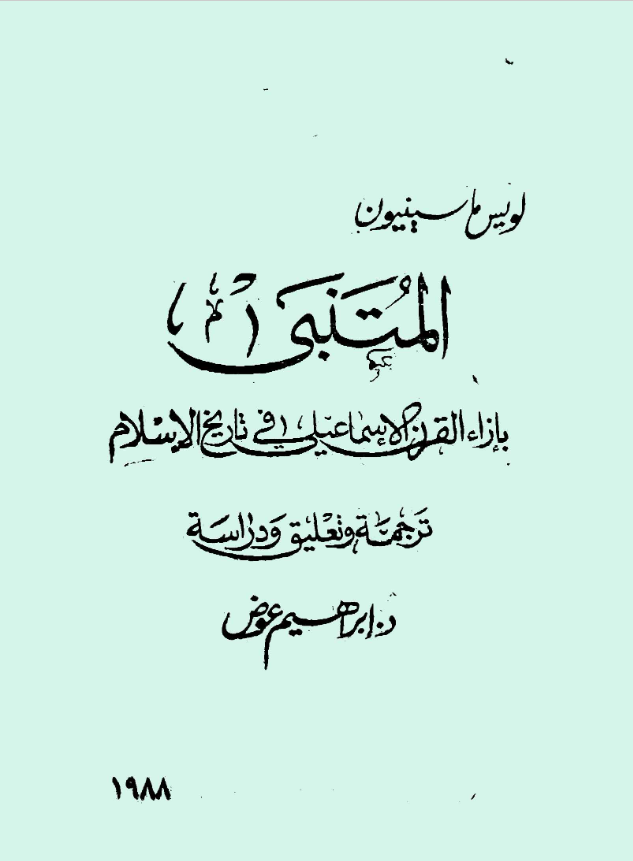 لويس ماسينيون
المُتَنَبِّى
بإزاء القرن الإسماعيلى فى تاريخ الإسلام
ترجمة وتعليق ودراسة
د. إبراهيم عوض
١٩٨٨